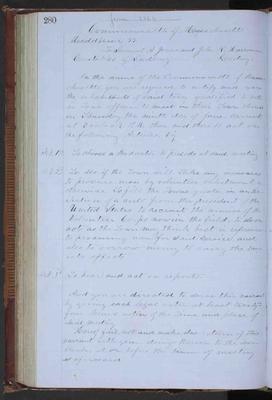 280
June 1864
Commonwealth of Massachusetts
Middlesex ss
To Samuel A Jones and John R.
Constables of Sudbury Greeting
In the name of the Commonwealth of Massa
chusetts you are required to notify and warn
the inhabitants of said town qualified to vote
in Town affairs to meet in their Town House
on Thursday the ninth day of June current
at o'clock P.M. then and there to act on
the following Articles viz
Art. 1st. To choose a Moderator to preside at said meeting
Art. 2d. To see if the Town will take any measures
to procure men by voluntary enlistment
to fill the Towns quota in antic
ipation of a call from the president of the
United States to recruit the armies of the
Volunteer Corps now in the field & to do or
act as the Town may think best in reference
to procuring men for said service and
also to borrow money to carry the same
into effect
Art. 3d. To hear and act on reports
And you are directed to serve this warrant
by giving each legal voter at least
four hours notice of the time and place of
said meeting
Hereof fail not and make due return of this
warrant with your doings thereon to the Town
Clerk, at or before the time of meeting
as aforesaid